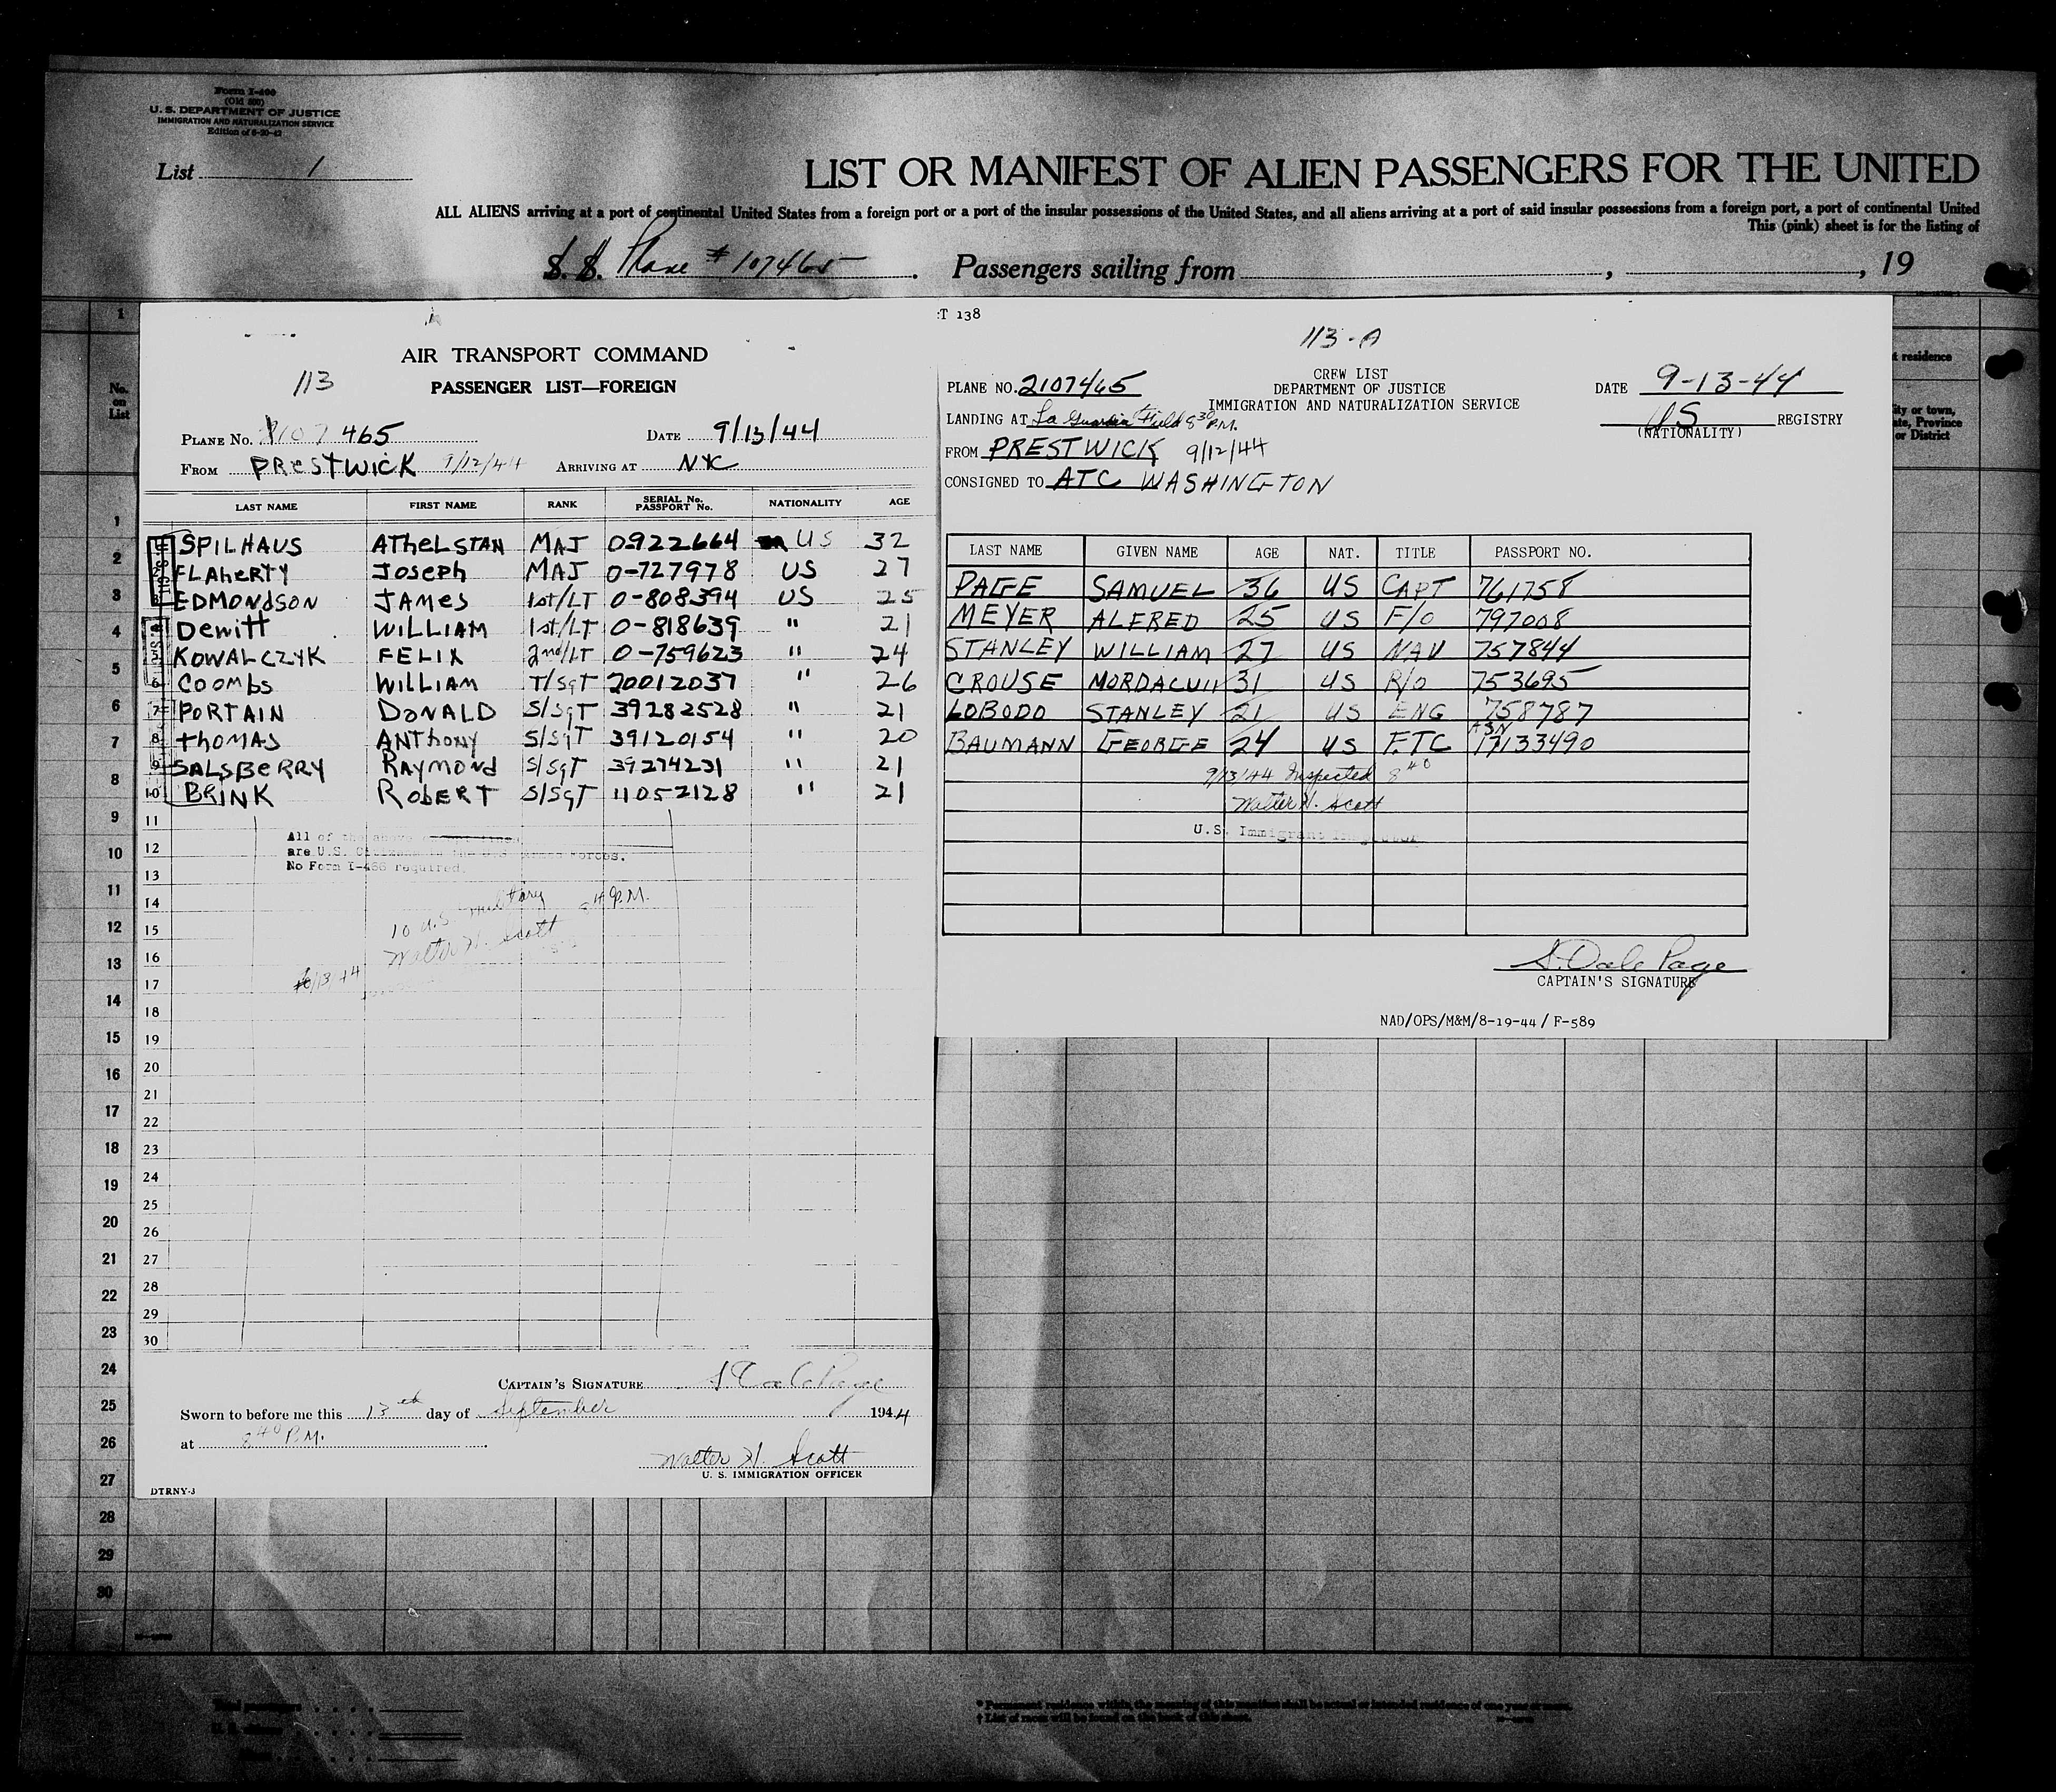 Form I-400
(Old 500)
U. S. DEPARTMENT OF JUSTICE
IMMIGRATION AND NATURALIZATION SERVICE
Edition of 6-20-42
List 1
LIST OR MANIFEST OF ALIEN PASSENGERS FOR THE UNITED
ALL ALIENS arriving at a port of continental United States from a foreign port or a port of the insular possessions of the United States, and all aliens arriving at a port of said insular possessions from a foreign port, a port of continental United
This (pink) sheet is for the listing of
S. S. Plane # 107465 . Passengers sailing from , , 19
No. on List
t residence
ity or town,
ate, Province
or District
AIR TRANSPORT COMMAND
113
PASSENGER LIST—FOREIGN
PLANE No. 2107465 DATE 9/13/44
FROM PRESTWICK 9/12/44 ARRIVING AT NYC
LAST NAME FIRST NAME RANK SERIAL No. PASSPORT No. NATIONALITY AGE
1 SPILHAUS ATHELSTAN MAJ 0922664 US 32
2 FLAHERTY JOSEPH MAJ 0-727978 US 27
3 EDMONDSON JAMES 1st/LT 0-808394 US 25
4 DEWITT WILLIAM 1st/LT 0-818639 " 21
5 KOWALCZYK FELIX 2nd/LT 0-759623 " 24
6 COOMBS WILLIAM T/SGT 20012037 " 26
7 PORTAIN DONALD S/SGT 39282528 " 21
8 THOMAS ANTHONY S/SGT 39120154 " 20
9 SALSBERRY RAYMOND S/SGT 39274231 " 21
10 BRINK ROBERT S/SGT 11052128 " 21
11
12
13
14
15
16
17
18
19
20
21
22
23
24
25
26
27
28
29
30
All of the above except lines
are U.S. Citizens in the U.S. Armed Forces.
No Form I-466 required.
10 U.S. Military P.M.
Walter H. Scott
CAPTAIN'S SIGNATURE S Dale Page
Sworn to before me this 13th day of September 1944
at 8 40 P.M.
Walter H. Scott
U. S. IMMIGRATION OFFICER
DTRNY-3
T 138
113-A
CREW LIST
PLANE NO. 2107465 DEPARTMENT OF JUSTICE DATE 9-13-44
IMMIGRATION AND NATURALIZATION SERVICE
LANDING AT La Guardia Field 8 30 P.M. US REGISTRY
(NATIONALITY)
FROM PRESTWICK 9/12/44
CONSIGNED TO ATC WASHINGTON
LAST NAME GIVEN NAME AGE NAT. TITLE PASSPORT NO.
PAGE SAMUEL 36 US CAPT 761758
MEYER ALFRED 25 US F/O 797008
STANLEY WILLIAM 27 US NAV 757844
CROUSE 31 US R/O 753695
LOBODO STANLEY 21 US ENG 758787
BAUMANN GEORGE 24 US FTC ASN 17133490
9/13/44 Inspected 8 40
Walter H. Scott
U.S. Immigrant Inspector
S. Dale Page
CAPTAIN'S SIGNATURE
NAD/OPS/M&M/8-19-44/ F-589
1
1
2
3
4
5
6
7
8
9
10
11
12
13
14
15
16
17
18
19
20
21
22
23
24
25
26
27
28
29
30
* Permanent residence within the meaning of this manifest shall be actual or intended residence of one year or more.
† List of races will be found on the back of this sheet.